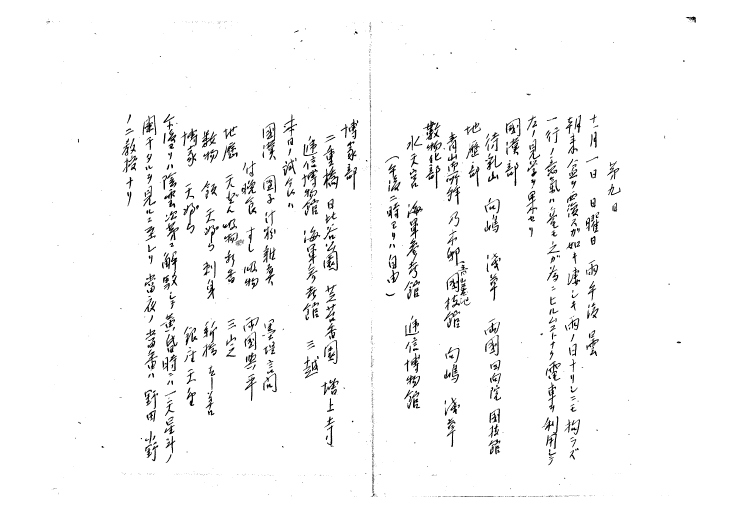 第九日
十一月一日 日曜日 雨午後曇
朝来盆ヲ覆スガ如キ凄シキ雨ノ日ナリシニモ拘ラズ
一行ノ意気ハ毫モ之ガ為ニヒルムコトナク電車ヲ利用シテ
左ノ見学ヲ果セリ
國漢部
待乳山 向嶋 浅草 両國回向院 國技館
地歴部
青山 乃木邸 國技館 向嶋 浅草
數物化部
水天宮 海軍参考館 逓信博物館
(午後二時ヨリハ自由)
博家部
二重橋 日比谷公園 芝 増上寺
逓信博物館 海軍参考館 三越
本日ノ試食ハ
國漢 團子 雑煮 言問
付晩食 すし 吸物 両國與平
地歴 天どん 吸物
數物 飯 天ぷら 刺身 新橋
博家 天ぷら 銀座天金
午後ヨリハ陰雲次第ニ解散シテ黄昏時ニハ一天星斗ノ
闌干タルヲ見ルニ至レリ 當夜ノ當番ハ野田 小野
ノ二教授ナリ